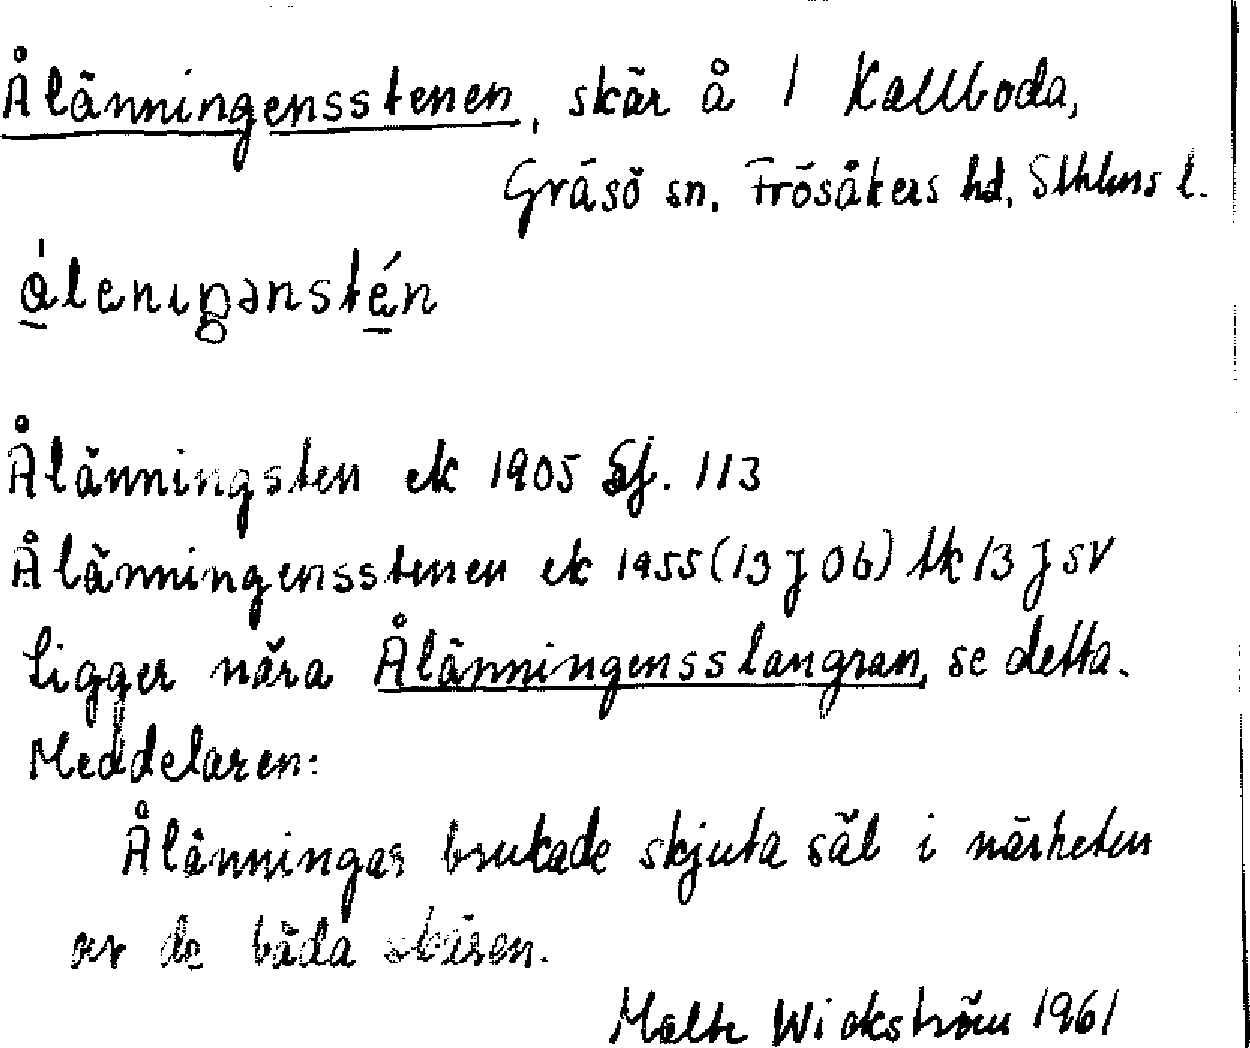 Ålänningensstenen, skär å 1 Kallboda,
Gräsö sn. Frösåkers hd, Sthlms l.
Ålänningsten ek 1905 Sf. 113
Ålänningensstenen ek 1955 (13 J 0b) tk 13 J SV
Ligger nära Ålänningensslangran, se detta.
Meddelaren:
Ålänningar brukade skjuta säl i närheten
av de båda skären.
Malte Wickström 1961